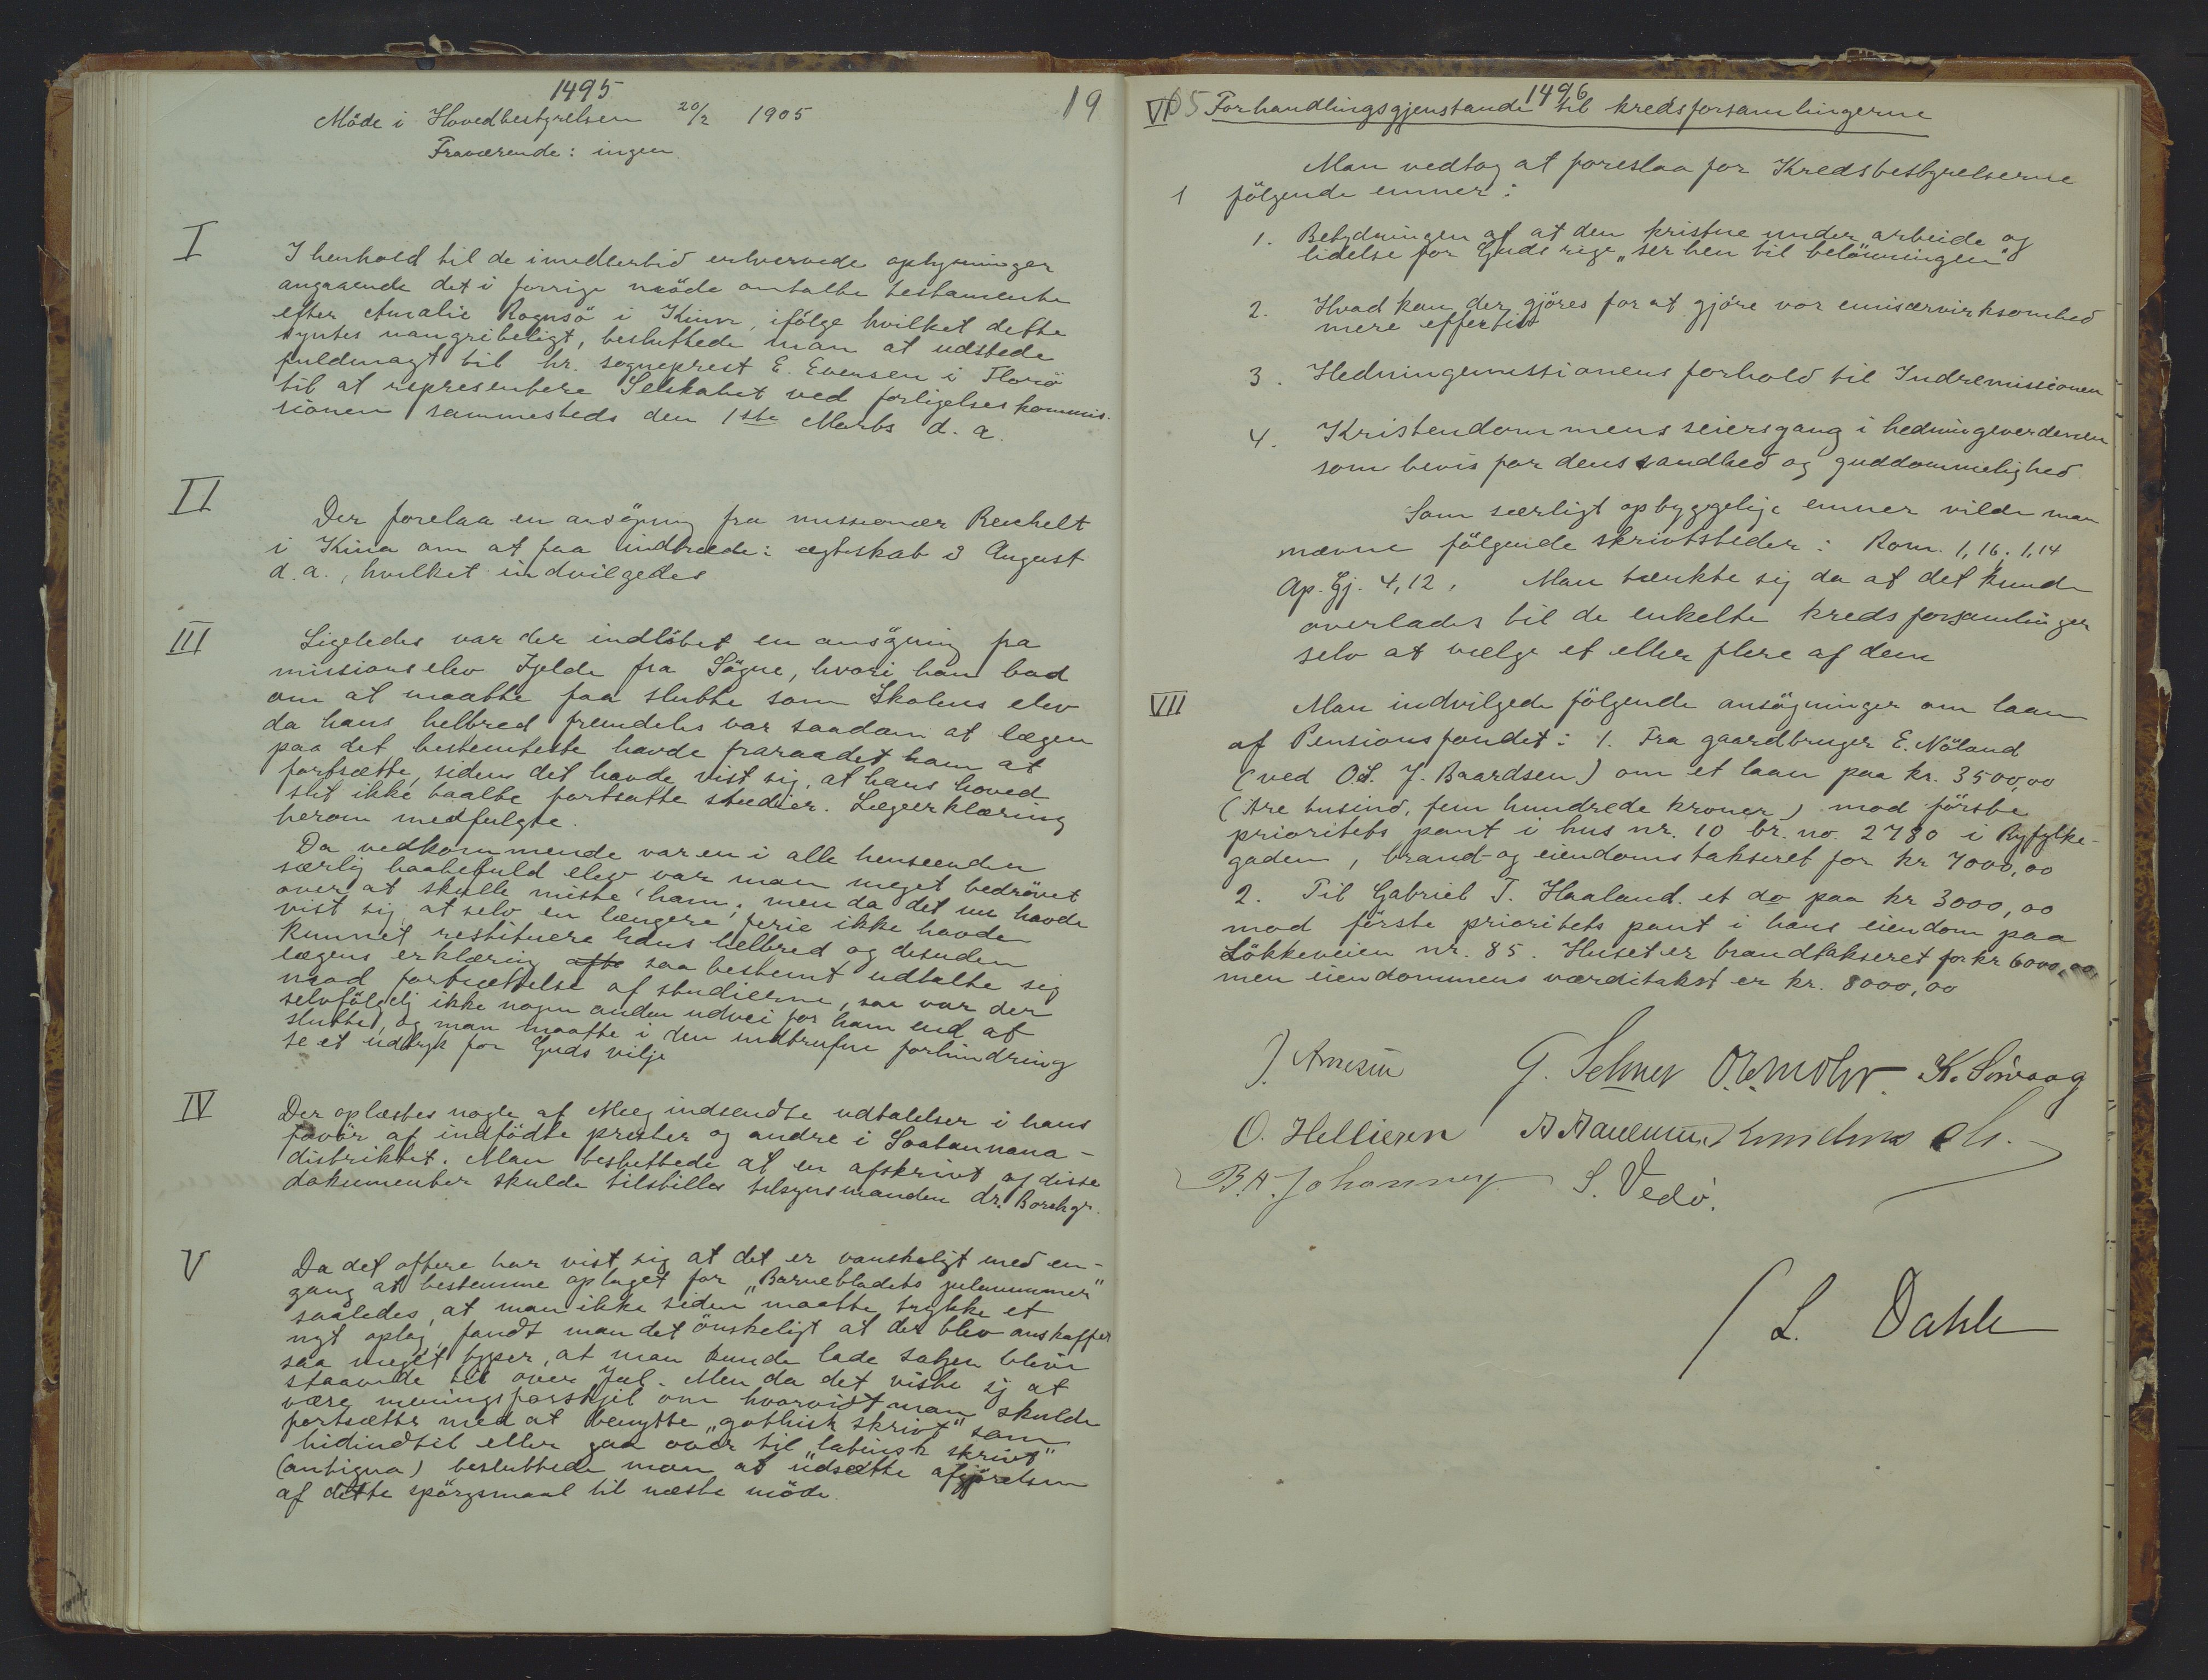 1495
19
Møde i Hovedbestyrelsen 20/2 1905
Fraværende: ingen
I
I henhold til de imidlertid erhvervede oplysninger
angaaende det i forrige møde omtalte testamente
efter Amalie Rognsø i Kinn, ifølge hvilket dette
syntes uangribeligt, besluttede man at udstede
fuldmagt til hr. sogneprest E. Evensen i Florø
til at representere Selskabet ved forligelseskommis-
sionen sammesteds den 1ste Marts d. a.
II
Der forelaa en ansøgning fra missionær Reichelt
i Kina om at faa indtræde i ægteskab i August
d. a., hvilket indvilgedes
III
Ligeledes var der indløbet en ansøgning fra
missionselev Fjelde fra Søgne, hvori han bad
om at maatte faa slutte som Skolens elev
da hans helbred fremdeles var saadan at lægen
paa det bestemteste havde fraraadet ham at
fortsætte, siden det havde vist sig, at hans hoved
slet ikke taalte fortsatte studier. Lægeerklæring
herom medfulgte.
Da vedkommende var en i alle henseender
særlig haabefuld elev var man meget bedrøvet
over at skulle miste ham; men da det nu havde
vist sig at selv en længere ferie ikke havde
kunnet restituere hans helbred og desuden
lægens erklæring saa bestemt udtalte sig
mod fortsættelse af studierne, saa var der
selvfølgelig ikke nogen anden udvei for ham end at
slutte, og man maatte i den indtrufne forhindring
se et udtryk for Guds vilje
IV
Der oplæstes nogle af Meeg indsendte udtalelser i hans
favør af indfødte prester og andre i Soatanana-
distriktet. Man besluttede at en afskrivt af disse
dokumenter skulde tilstilles tilsynsmanden dr. Borchgr.
V
Da det oftere har vist sig at det er vanskeligt med en-
gang at bestemme oplaget for „Barnebladets julenummer"
saaledes, at man ikke siden maatte trykke et
nyt oplag, fandt man det ønskeligt at der blev anskaffet
saa meget typer, at man kunde lade satsen blive
staaende til over Jul. Men da det viste sig at
være meningsforskjel om hvorvidt man skulde
fortsætte med at benytte „gothisk skrivt" som
hidindtil eller gaa over til „latinsk skrivt"
(antiqua) besluttede man at udsætte afgjørelsen
af dette spørgsmaal til næste møde.
1496
VI Forhandlingsgjenstande til kredsforsamlingerne
Man vedtog at foreslaa for Kredsbestyrelserne
1 følgende emner:
1. Betydningen af at den kristne under arbeide og
lidelse for Guds rige „ser hen til belønningen"
2. Hvad kan der gjøres for at gjøre vor emisærvirksomhed
mere effektiv
3. Hedningemissionens forhold til Indremissionen
4. Kristendommens seiersgang i hedningeverdenen
som bevis for dens sandhed og guddommelighed
Som særligt opbyggelige emner vilde man
nævne følgende skrivtsteder: Rom. 1,16. 1,14
Ap. Gj. 4,12. Man tænkte sig da at det kunde
overlades til de enkelte kredsforsamlinger
selv at vælge et eller flere af dem
VII
Man indvilgede følgende ansøgninger om laan
af Pensionsfondet: 1. Fra gaardbruger E. Nøland
(ved O.S. J. Baardsen) om et laan paa kr. 3500,00
(tre tusind, fem hundrede kroner) mod første
prioritets pant i hus nr. 10 br. no. 2780 i Ryfylke-
gaden, brand- og eiendomstakseret for kr 7000,00
2. Til Gabriel T. Haaland. et do paa kr 3000,00
mod første prioritets pant i hans eiendom paa
Løkkeveien nr. 85. Huset er brandtakseret for kr 6000,00
men eiendommens værditakst er kr. 8000,00
J. Arnesen
K. Sörvaag
O. Hellieren
B. A. Johannes
S. Vedø.
/ L. Dahle